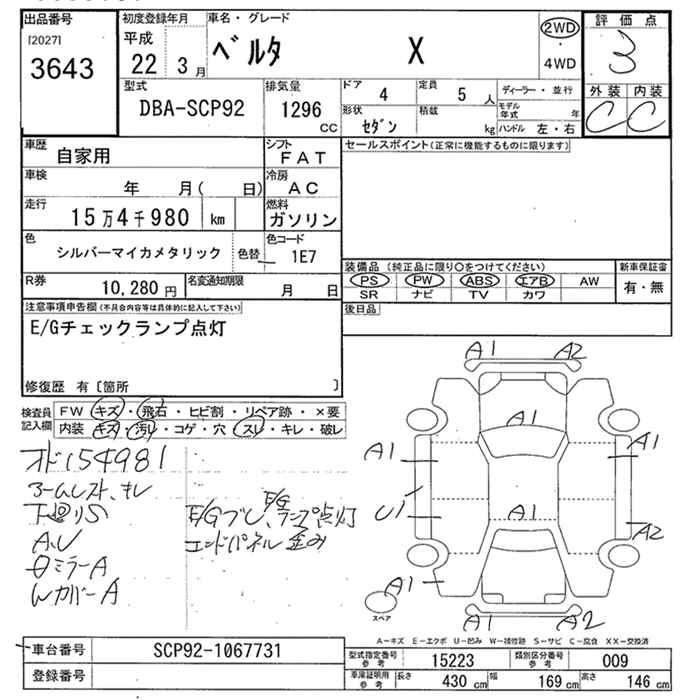 出品番号
[2027]
3643
初度登録年月
平成
22 3月
車名・グレード
ベルタ X
2WD
・
4WD
評価点
3
外装 内装
C C
型式
DBA-SCP92
排気量
1296
CC
ドア
4
定員
5 人
形状
セダン
積載
kg
ディーラー・並行
モデル年式 年
ハンドル 左・右
車歴
自家用
シフト
FAT
車検
年 月( 日)
冷房
AC
走行
15万4千980 km
燃料
ガソリン
色
シルバーマイカメタリック
色替
色コード
1E7
R券
10,280 円
名変通知期限
月 日
セールスポイント(正常に機能するものに限ります)
装備品 (純正品に限り○をつけてください)
PS PW ABS エアB AW
SR ナビ TV カワ
新車保証書
有・無
後日品
注意事項申告欄(不具合内容等は具体的に記入して下さい)
E/Gチェックランプ点灯
修復歴 有〔箇所 〕
検査員記入欄
FW キズ・飛石・ヒビ割・リペア跡・×要
内装 キズ・汚レ・コゲ・穴・スレ・キレ・破レ
オド154981
アームレスト、キレ
下廻りS
A、U
ミラーA
WカバーA
E/Gブレ、E/Gランプ点灯
エンドパネル歪み
A1 A2
A1
A1 A1
U1 A1 A2
A1
A1 A2
スペア
A-キズ E-エクボ U-凹み W-補修跡 S-サビ C-腐食 XX-交換済
車台番号
SCP92-1067731
登録番号
型式指定番号
参考
15223
類別区分番号
参考
009
車庫証明用
参考
長さ 430 cm
幅 169 cm
高さ 146 cm